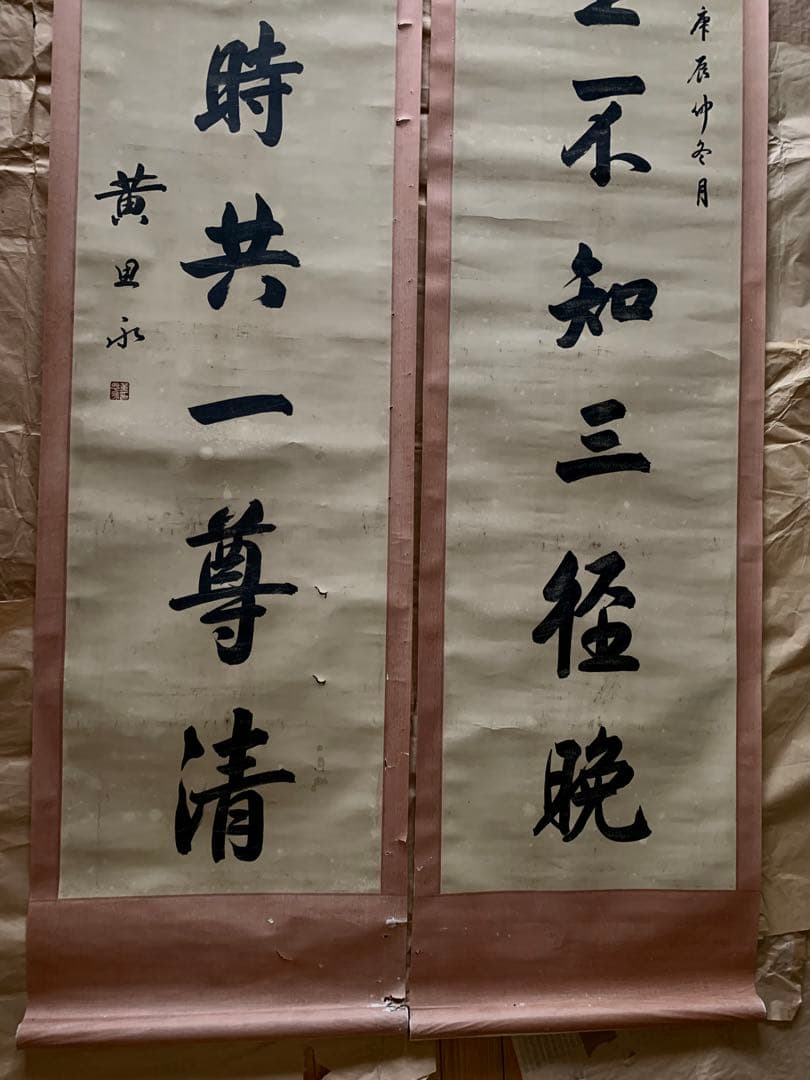 庚辰仲冬月
不知三径晚
時共一尊清
黄思永